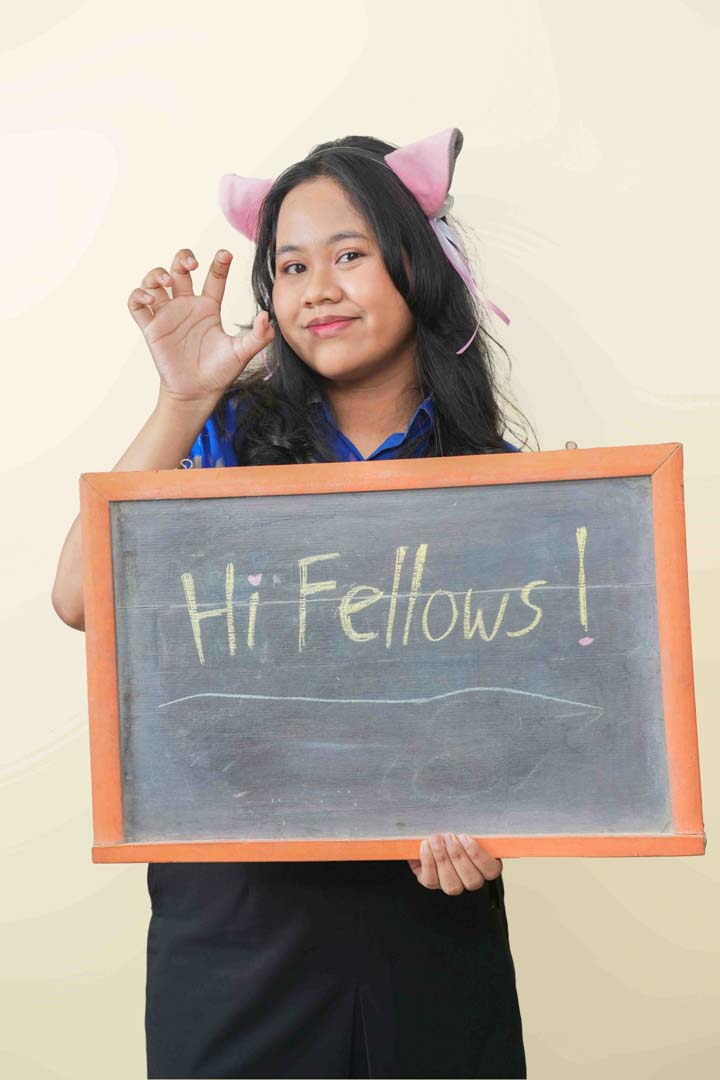 Hi Fellows!